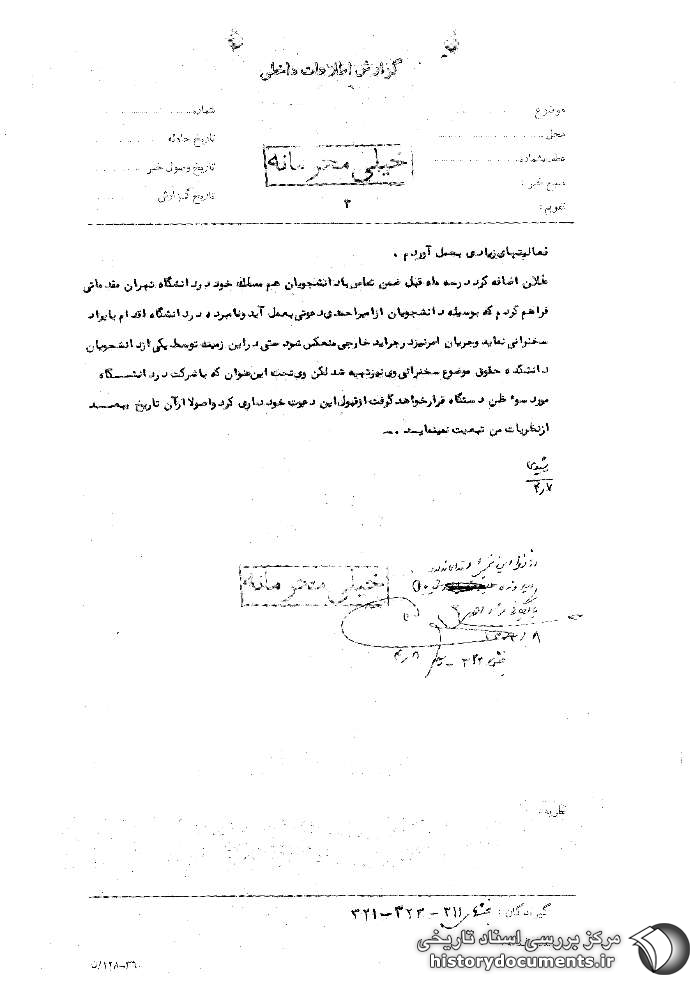 گزارش اطلاعات داخلی
موضوع
شماره
محل
تاریخ حادثه
عطف بشماره
تاریخ وصول خبر
منبع خبر :
تاریخ گزارش
تقویم :
خیلی محرمانه
۲
فعالیتهای زیادی بعمل آوردم .
فلان اضافه کرد در سه ماه قبل ضمن تماس با دانشجویان هم مسلک خود در دانشگاه تهران مقدماتی
فراهم کردم که بوسیله دانشجویان از امیراحمدی دعوتی بعمل آید و نامبرده در دانشگاه اقدام بایراد
سخنرانی نماید و جریان امر نیز در جراید خارجی منعکس شود حتی در این زمینه توسط یکی از دانشجویان
دانشکده حقوق موضوع سخنرانی وی نیز تهیه شد لکن وی تحت این عنوان که با شرکت در دانشگاه
مورد سوء ظن دستگاه قرار خواهد گرفت از قبول این دعوت خودداری کرد و اصولا از آن تاریخ ببعد
از نظریات من تبعیت نمینماید .
۲٫۷
خیلی محرمانه
نظریه :
گیرندگان : بخش ۲۱۱ - ۳۲۳ - ۳۲۱
مرکز بررسی اسناد تاریخی
historydocuments.ir